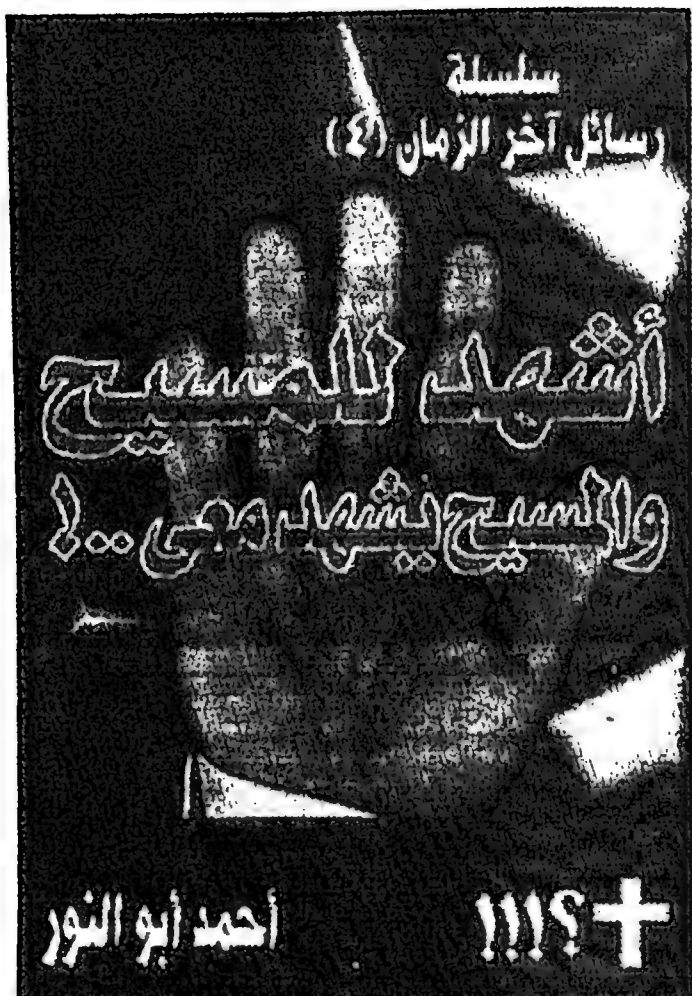 سلسلة
رسائل آخر الزمان (٤)
أشهد للمسيح
والمسيح يشهد معى ..!
؟!!!
أحمد أبو النور